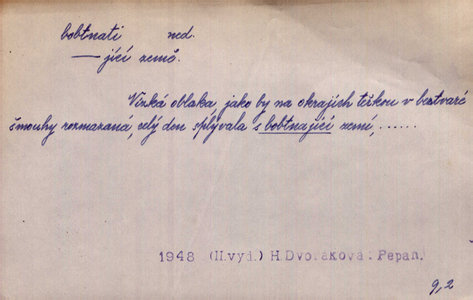 bobtnati ned.
— jící země.
Nízká oblaka, jako by na okrajích těžkou v beztvaré
šmouhy rozmazaná, celý den splývala s bobtnající zemí, ......
1948 (II.vyd.) H.Dvořáková: Pepan.
9,2